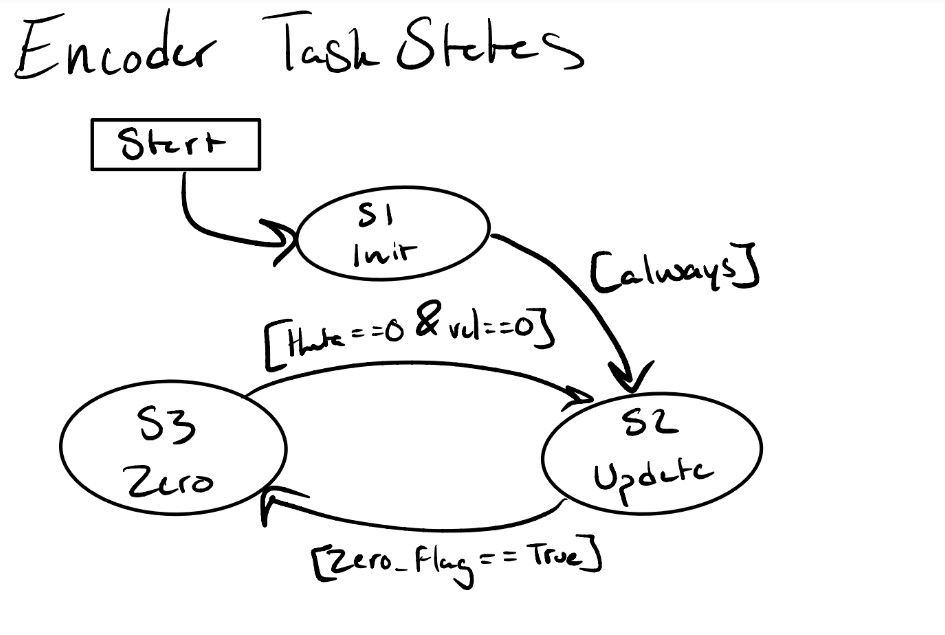 Encoder Task States
Start
S1
Init
[always]
[theta==0 & vel==0]
S3
Zero
S2
Update
[Zero_Flag == True]